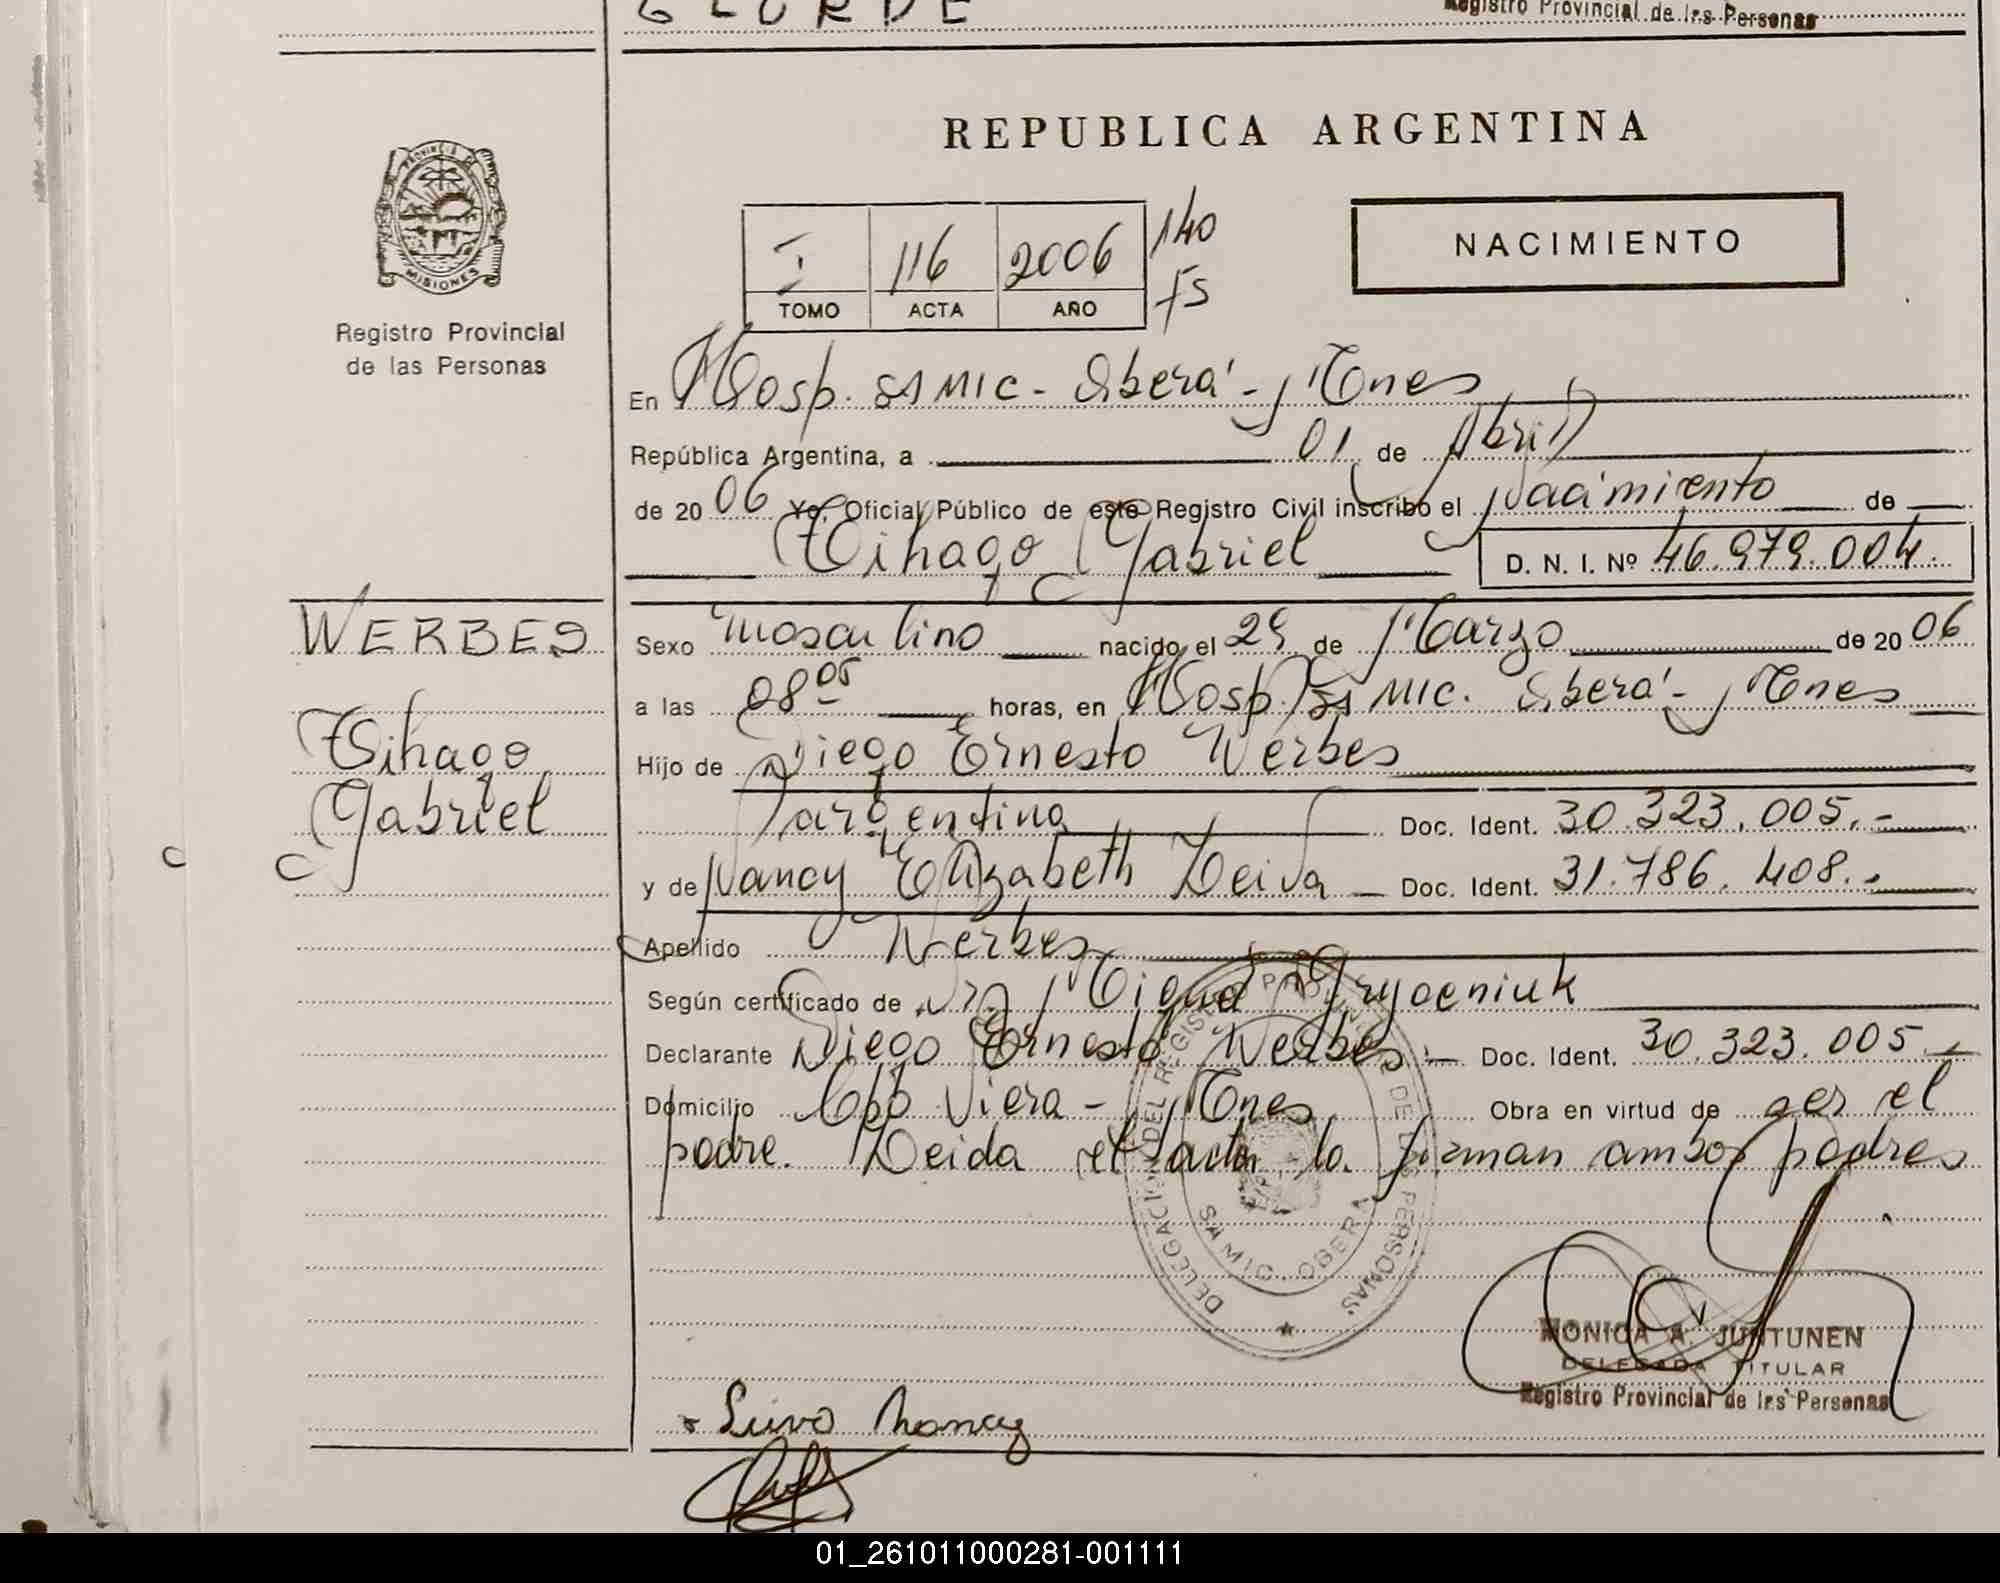 GLORDE
Registro Provincial de las Personas
REPUBLICA ARGENTINA
PROVINCIA DE
MISIONES
Registro Provincial
de las Personas
I 116 2006 140
TOMO ACTA AÑO FS
NACIMIENTO
En Hosp. SAMIC - Oberá - Mnes
República Argentina, a 01 de Abril
de 20 06 Yo, Oficial Público de este Registro Civil inscribo el Nacimiento de
Tihago Gabriel D. N. I. Nº 46.979.004.
WERBES
Tihago
Gabriel
Sexo Masculino nacido el 29 de Marzo de 20 06
a las 08 05 horas, en Hosp. SAMIC. Oberá - Mnes
Hijo de Diego Ernesto Werbes
argentina Doc. Ident. 30.323.005.-
y de Nancy Elizabeth Leiva - Doc. Ident. 31.786.408.-
Apellido Werbes
Según certificado de Dr. Miguel
Declarante Diego Ernesto Werbes - Doc. Ident. 30.323.005.-
Domicilio Cpo Viera - Mnes Obra en virtud de ser el
padre. Leida el acta la firman ambos padres
DELEGACION DEL REGISTRO PROVINCIAL DE LAS PERSONAS
SAMIC - OBERA
MONICA A. JUNTUNEN
DELEGADA TITULAR
Registro Provincial de las Personas
Nancy
01_261011000281-001111